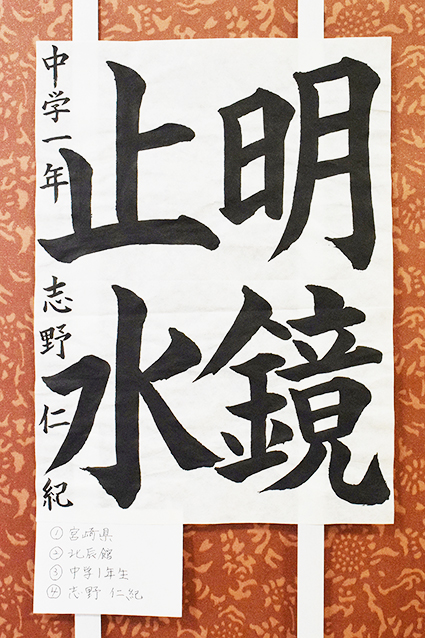 明鏡
止水
中学一年 志野仁紀
①宮崎県
②北辰館
③中学1年生
④志野 仁紀